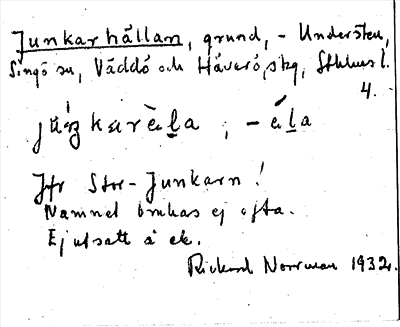 Junkarhällan, grund, - Understen,
Singö sn, Väddö och Häverö skg, Sthlms l.
4.
Jfr Stor-Junkarn!
Namnet brukas ej ofta.
Ej utsatt å ek.
Rickard Norrman 1932.